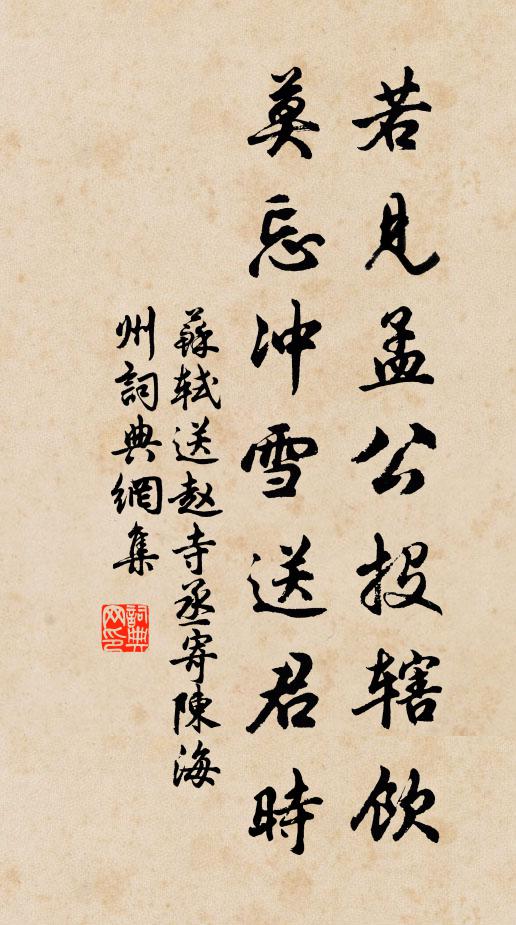 若見孟公投辖飲
莫忘冲雪送君時
蘇軾送赵寺丞寄陳海
州詞典網集
詞典
网印